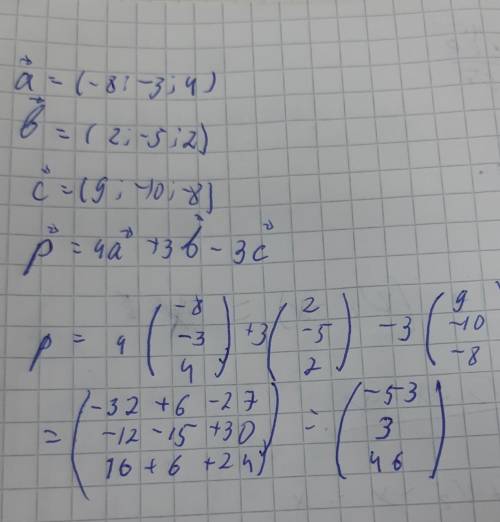 a⃗ = (-8; -3; 4)
b⃗ = (2; -5; 2)
c⃗ = (9; -10; -8)
p⃗ = 4a⃗ + 3b⃗ - 3c⃗
p = 4 (-8 -3 4) + 3 (2 -5 2) - 3 (9 -10 -8
= (-32 + 6 - 27
-12 - 15 + 30
16 + 6 + 24) = (-53
3
46)